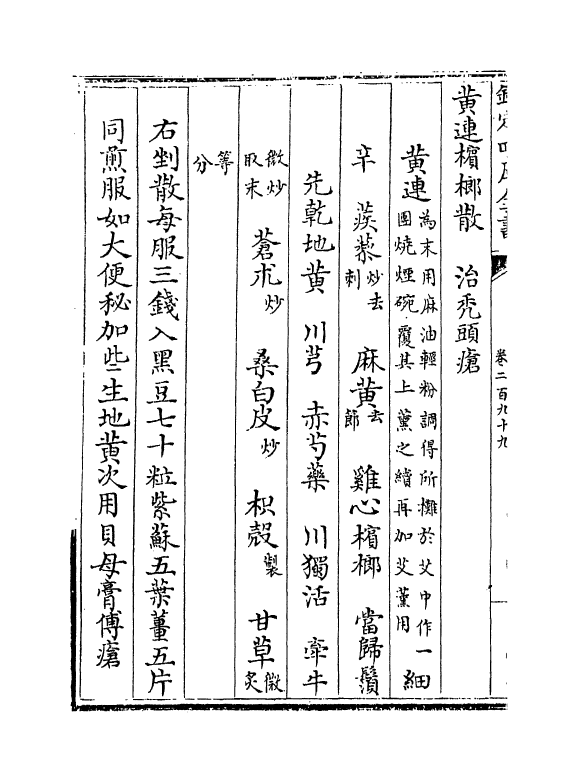 欽定四庫全書 卷二百九十九
黃連檳榔散 治禿頭瘡
黃連 為末用麻油輕粉調得所攤於艾中作一團燒煙碗覆其上薰之續再加艾薰用 細
辛 蒺藜炒去刺 麻黃去節 雞心檳榔 當歸鬚
先乾地黃 川芎 赤芍藥 川獨活 牽牛
微炒取末 蒼朮炒 桑白皮炒 枳殼製 甘草微炙
等分
右剉散每服三錢入黑豆七十粒紫蘇五葉薑五片
同煎服如大便秘加些生地黃次用貝母膏傅瘡